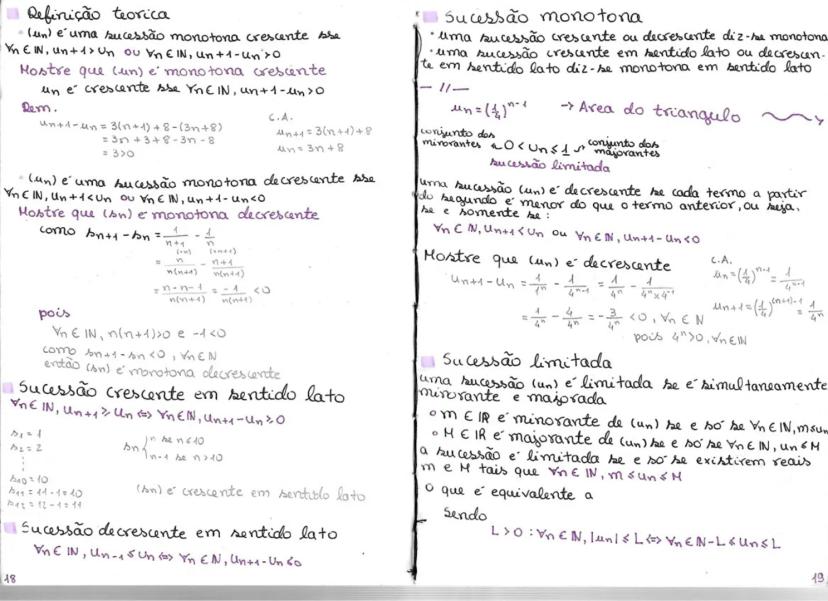 Definição teorica
• (un) é uma sucessão monotona crescente sse
∀n ∈ IN, un+1 > un ou ∀n ∈ IN, un+1 - un > 0
Mostre que (un) é monotona crescente
un é crescente sse ∀n ∈ IN, un+1 - un > 0
Dem.
un+1 - un = 3(n+1) + 8 - (3n+8)
= 3n + 3 + 8 - 3n - 8
= 3 > 0
C.A.
un+1 = 3(n+1) + 8
un = 3n + 8
• (un) é uma sucessão monotona decrescente sse
∀n ∈ IN, un+1 < un ou ∀n ∈ IN, un+1 - un < 0
Mostre que (sn) é monotona decrescente
como sn+1 - sn = 1/(n+1) - 1/n
(×n) (×n+1)
= n/(n(n+1)) - (n+1)/(n(n+1))
= (n-n-1)/(n(n+1)) = -1/(n(n+1)) < 0
pois
∀n ∈ IN, n(n+1) > 0 e -1 < 0
como sn+1 - sn < 0, ∀n ∈ N
então (sn) é monotona decrescente
Sucessão crescente em sentido lato
∀n ∈ IN, un+1 ≥ un ⇔ ∀n ∈ IN, un+1 - un ≥ 0
s1 = 1
s2 = 2
⋮
s10 = 10
s11 = 11 - 1 = 10
s12 = 12 - 1 = 11
sn { n se n ≤ 10
n-1 se n > 10
(sn) é crescente em sentido lato
Sucessão decrescente em sentido lato
∀n ∈ IN, un-1 ≤ un ⇔ ∀n ∈ IN, un+1 - un ≤ 0
18
Sucessão monotona
• uma sucessão crescente ou decrescente diz-se monotona
• uma sucessão crescente em sentido lato ou decrescen-
te em sentido lato diz-se monotona em sentido lato
— 11 —
un = (1/4)^(n-1) → Area do triangulo
conjunto dos minorantes 0 < un ≤ 1 conjunto dos majorantes
sucessão limitada
uma sucessão (un) é decrescente se cada termo a partir
do segundo é menor do que o termo anterior, ou seja,
se e somente se:
∀n ∈ IN, un+1 < un ou ∀n ∈ IN, un+1 - un < 0
Mostre que (un) é decrescente
un+1 - un = 1/1^n - 1/4^(n-1) = 1/4^n - 1/(4^n × 4^-1)
= 1/4^n - 4/4^n = -3/4^n < 0, ∀n ∈ N
pois 4^n > 0, ∀n ∈ IN
C.A.
un = (1/4)^(n-1) = 1/4^(n-1)
un+1 = (1/4)^((n+1)-1) = 1/4^n
Sucessão limitada
uma sucessão (un) é limitada se é simultaneamente
minorante e majorada
o m ∈ IR é minorante de (un) se e só se ∀n ∈ IN, m ≤ un
o M ∈ IR é majorante de (un) se e só se ∀n ∈ IN, un ≤ M
a sucessão é limitada se e só se existirem reais
m e M tais que ∀n ∈ IN, m ≤ un ≤ M
o que é equivalente a
sendo
L > 0 : ∀n ∈ IN, |un| ≤ L ⇔ ∀n ∈ N - L ≤ un ≤ L
19